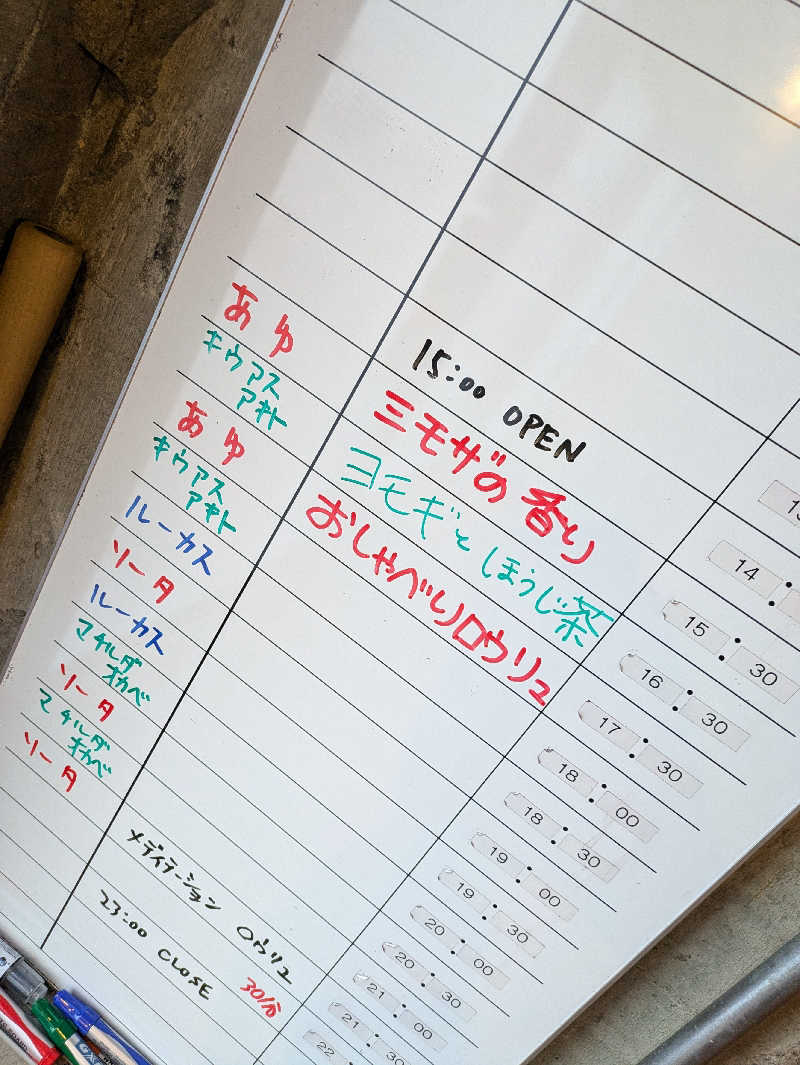 あゆ
キウアス
アキト
あゆ
キウアス
アキト
ルーカス
ソータ
ルーカス
マチルダ
オカベ
ソータ
マチルダ
オカベ
ソータ
15:00 OPEN
ミモザの香り
ヨモギとほうじ茶
おしゃべりロウリュ
メディテーション ロウリュ
30分
23:00 CLOSE
14:
15:30
16:30
17:30
18:00
18:30
19:00
19:30
20:00
20:30
21:00
21:30
22: